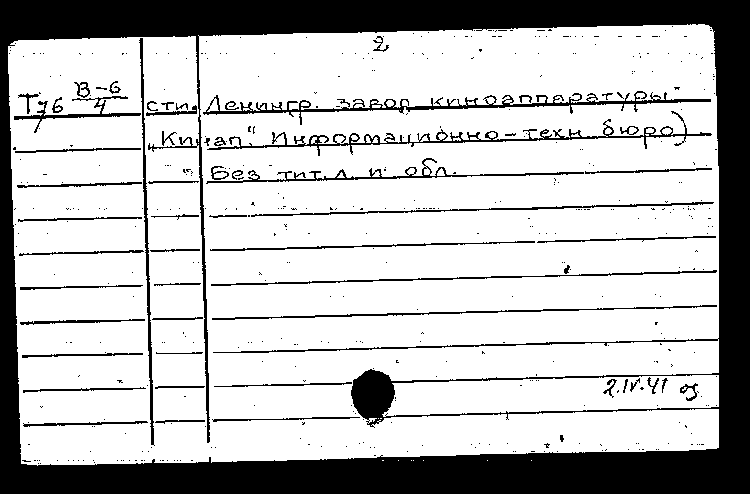 2
Т76 В-6/4 сти. Ленингр. завод киноаппаратуры
„Кинап". Информационно-техн бюро)
Без тит. л и обл.
2.IV.41